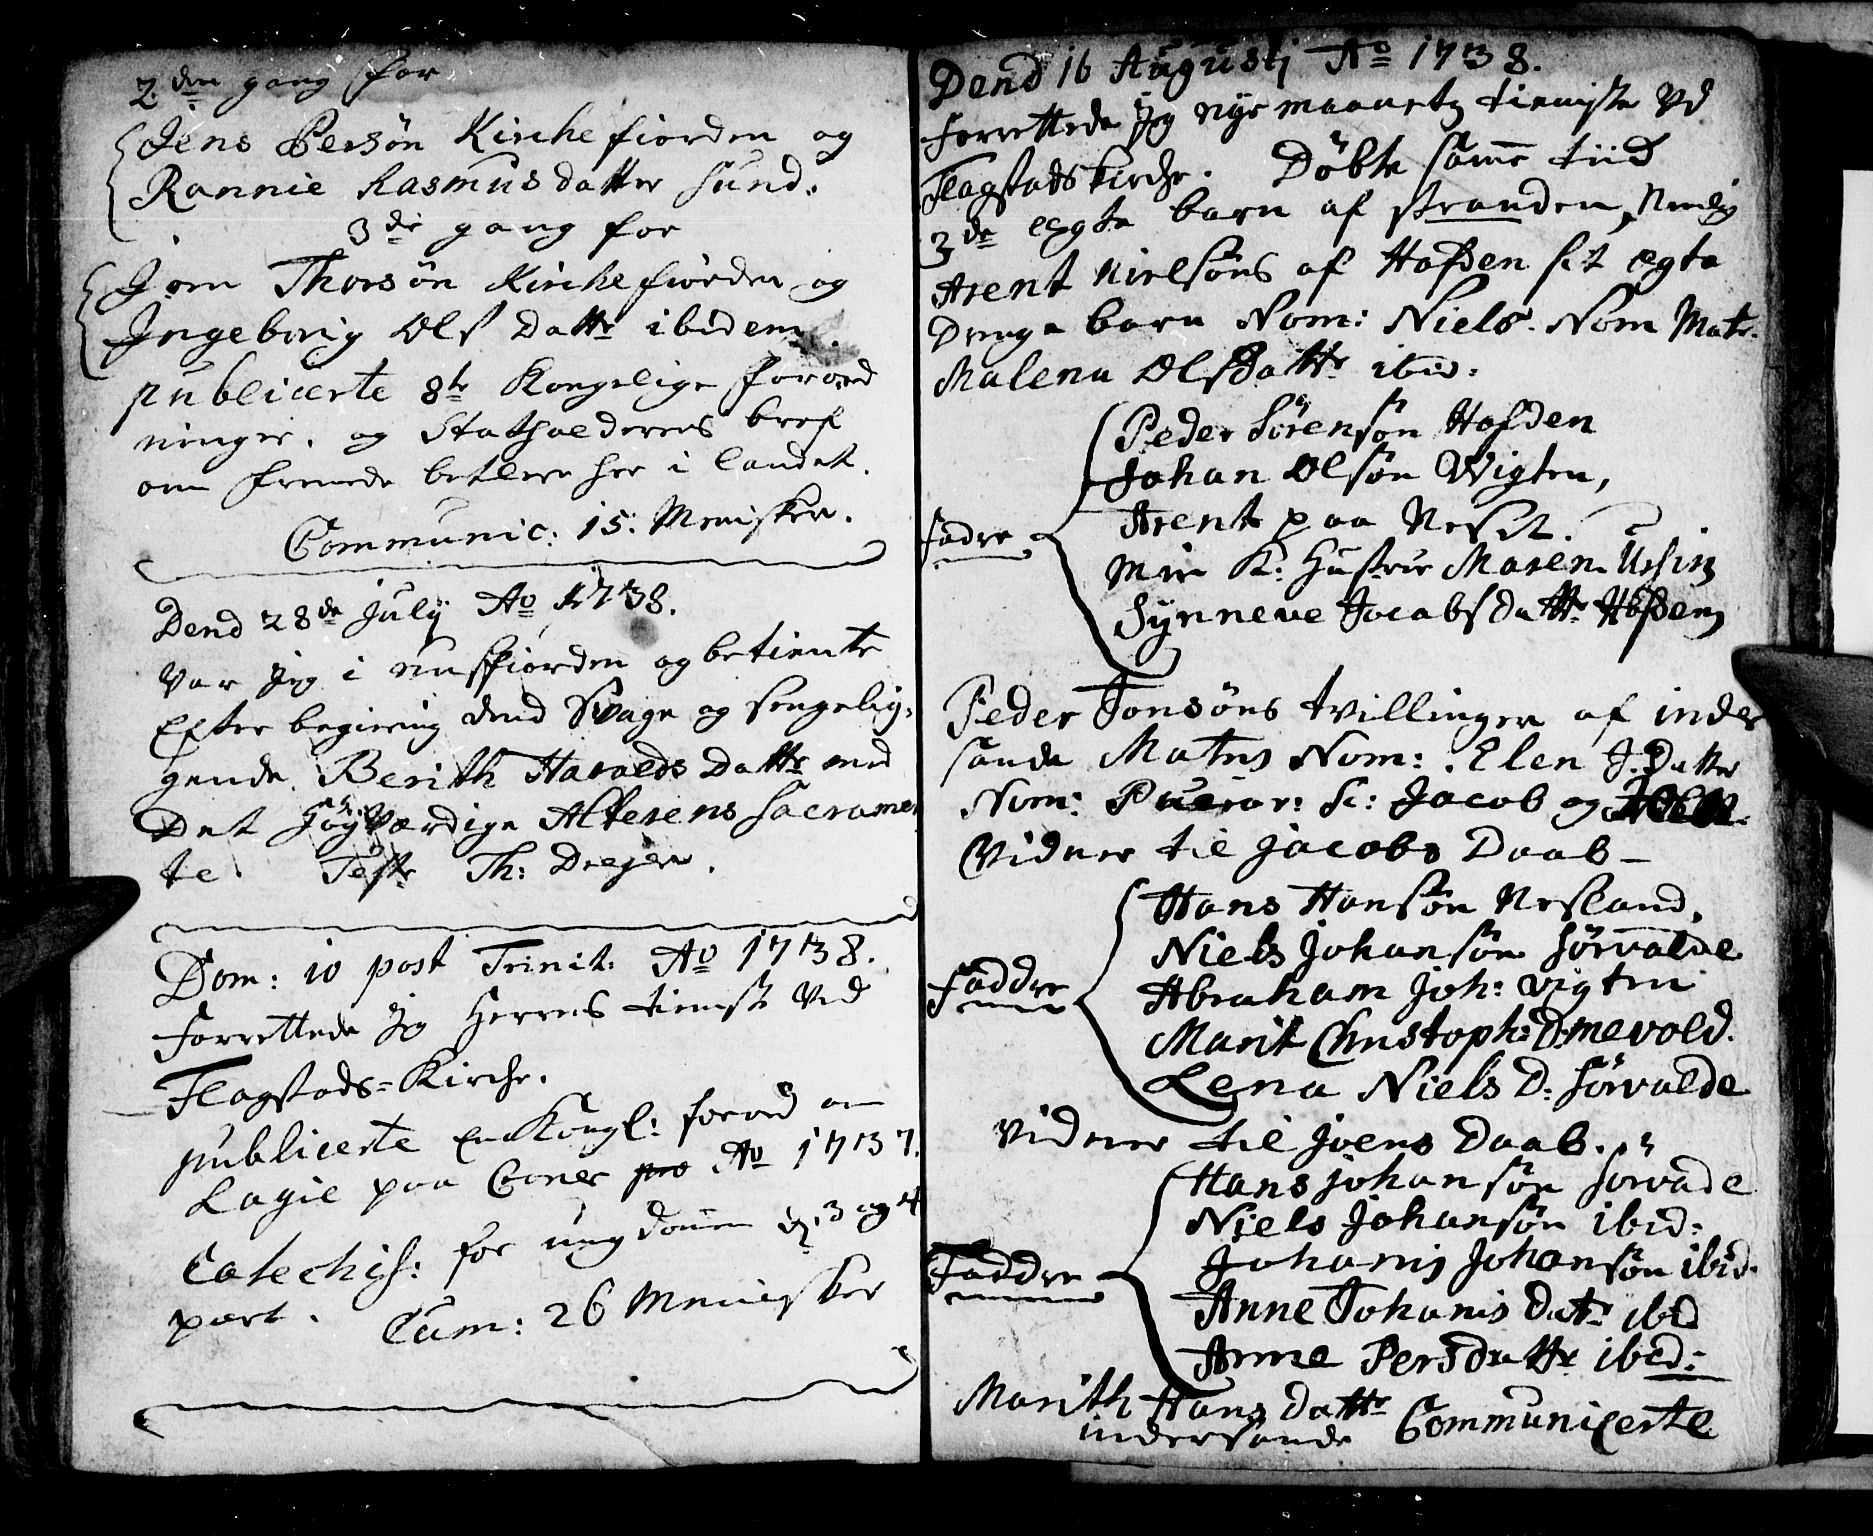 2den gang for
Jens Persøn Kirchefiorden og
Rannie Rasmusdatter Sund:
3de gang for
Jon Thorsøn Kirchefiorden og
Ingeborig Ols Dattr ibidem.
publicerte 8te Kongelige forord
ninger. og Statholderens bref
om fremede betlere her i landet.
Communic: 15. Menisker.
Dend 28de July Ao 1738.
Var jeg i nusfiorden og betiente
Efter begiering dend Svage og sengelig-
gende Berith Haralds Dattr med
Det høyværdige Alterens Sacramen
te Teste Th: Dreyer.
Dom: 10 post Trinit: Ao 1738.
Forrettede jeg Herrens tieniste Ved
Flagstads-Kirche.
publicerte en Kongl: forord om
paa Ao 1737.
Catechis: for ungdommen d. 3 og 4
part. Cum: 26 Menisker
Dend 16 Augustj Ao 1738.
Forrettede jeg nye maanetz tieniste Ved
Flagstads kirche. Døbte samme tiid
3de egte barn af stranden, Nemlig
Arent Nielsøns af Hafsden sit egte
Drenge barn Nom: Niels. Nom Matr.
Malena Olsdattr ibid:
Peder Sørensøn Hafsden
Johan Olsøn Wigten,
Arent paa Neset.
Fadre
Min K: Hustrue Maren Ursin
Synneve Jacobsdattr Hafsden
Peder Jonsøns tvillinger af inder
sande Matris Nom: Elen J: Datter
Nom: Pueror: sc: Jacob og
Vidner til Jacobs Daab-
Hans Hansøn Nesland,
Niels Johansøn Sørvalde
Faddre
Abraham Joh: Vigten
Marit Christoph: D:
Lena Niels D: Sørvalde
Vidner til Joens Daab.
Hans Johansøn Sørvade
Niels Johansøn ibid:
Faddre
Johanis Johansøn ibid.
Anne Johanis Datr ibid
Anne Persdattr ibid:
Marith Hans Dattr Communicerte
indersande